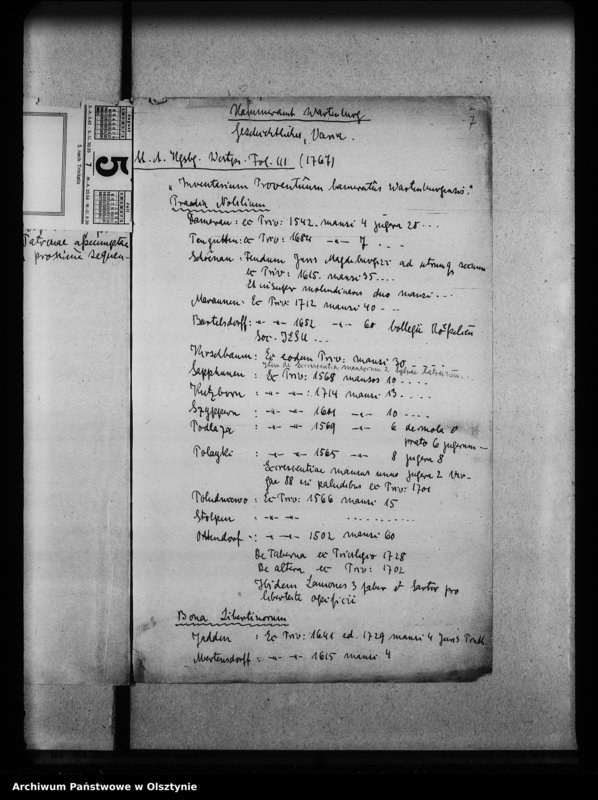 7
Kammeramt Wartenburg
Geschichtliches, Varia.
Fol. III (1767)
"Inventarium Proventuum Cameratus Wartenburgensis."
Praedia Nobilium
Dameran: ex Priv: 1542. mansi 4 jugera 28 ...
Tengutten: ex Priv: 1684 -"- 7 ....
Schönau: Feudum Juris Magdeburgici ad utrumq sexum
ex Priv: 1615. mansi 35 ....
Et insuper molendinarius duo mansi ...
Maraunen: Ex Priv: 1712 mansi 40 ...
Bartelsdorff: -"- -"- 1652 -"- 60 Collegii
Soc. JESU ...
Kirschbaum: Ex eodem Priv: mansi 70
Sapphunen: Ex Priv: 1568 mansos 10 ....
Kutzborn: -"- -"-: 1714 mansi 13 ....
: -"- -"- 1601 -"- 10 ....
Podlaza: -"- -"- 1569 -"- 6 de mola &
prato 6 jugerum ...
Polayki: -"- -"- 1565 -"- 8 jugera 8
Excrescentiae mansus unus jugera 2 vir-
gae 88 in paludibus ex Priv: 1701
: Ex Priv: 1566 mansi 15
Stolpen: -"- -"- ........
Ottendorf: -"- -"- 1502 mansi 60
De Taberna ex Privilegio 1728
De altera ex Priv: 1702
Ibidem 3 faber & Sartor pro
libertate opificii
Bona Libertinorum
Jadden: Ex Priv: 1641 ed. 1729 mansi 4 Juris
Mertensdorff: -"- -"- 1615 mansi 4
a proxime sequen-
5
Archiwum Państwowe w Olsztynie